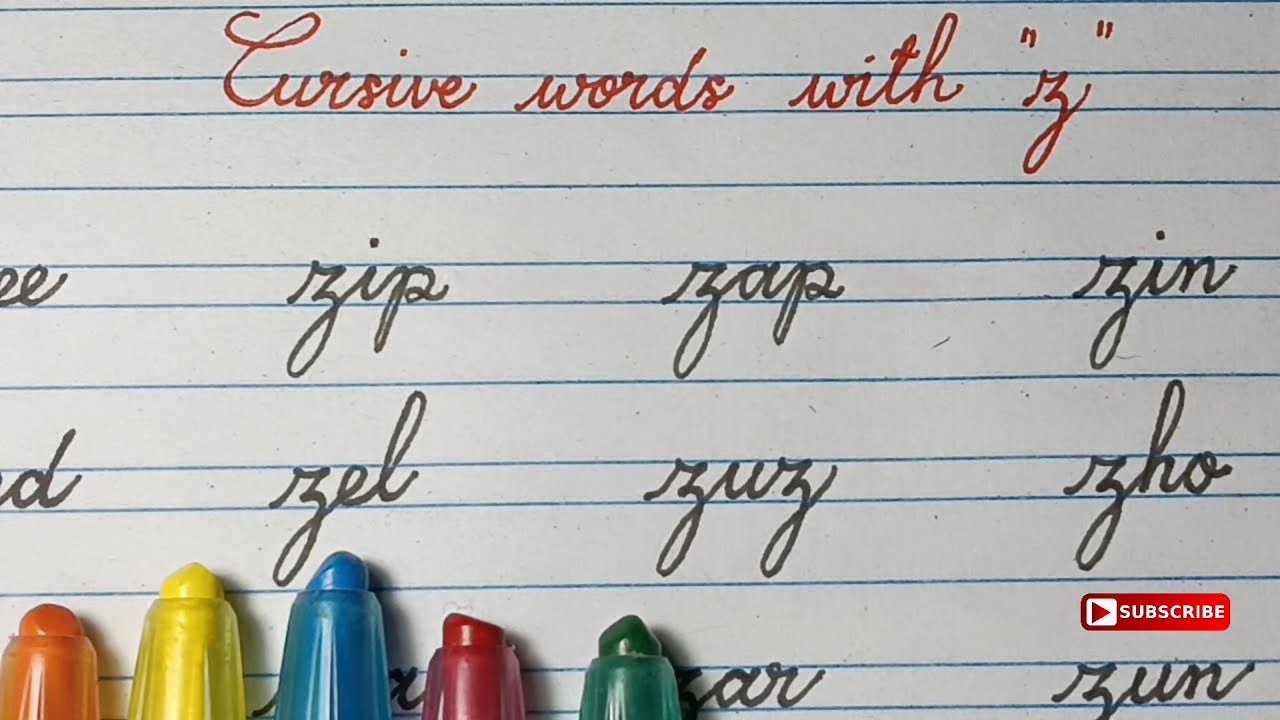 Cursive words with "z"
zip zap zin
zel zuz zho
SUBSCRIBE
zar zun